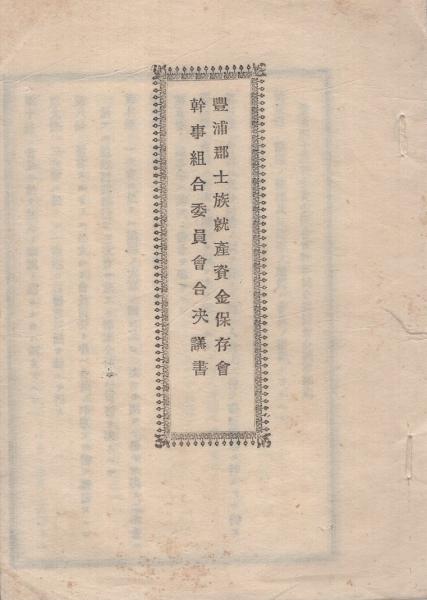 豊浦郡士族就産資金保存會
幹事組合委員會合决議書